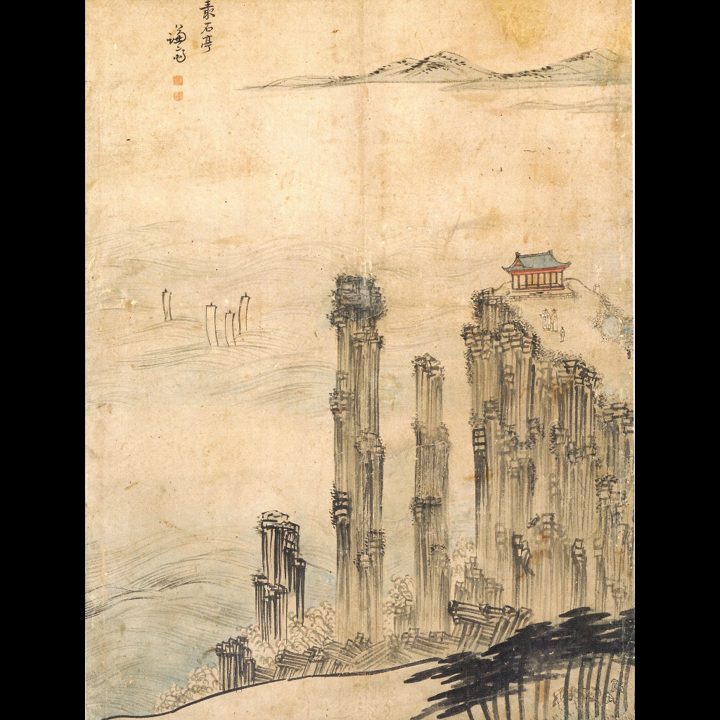 叢石亭
謙齋